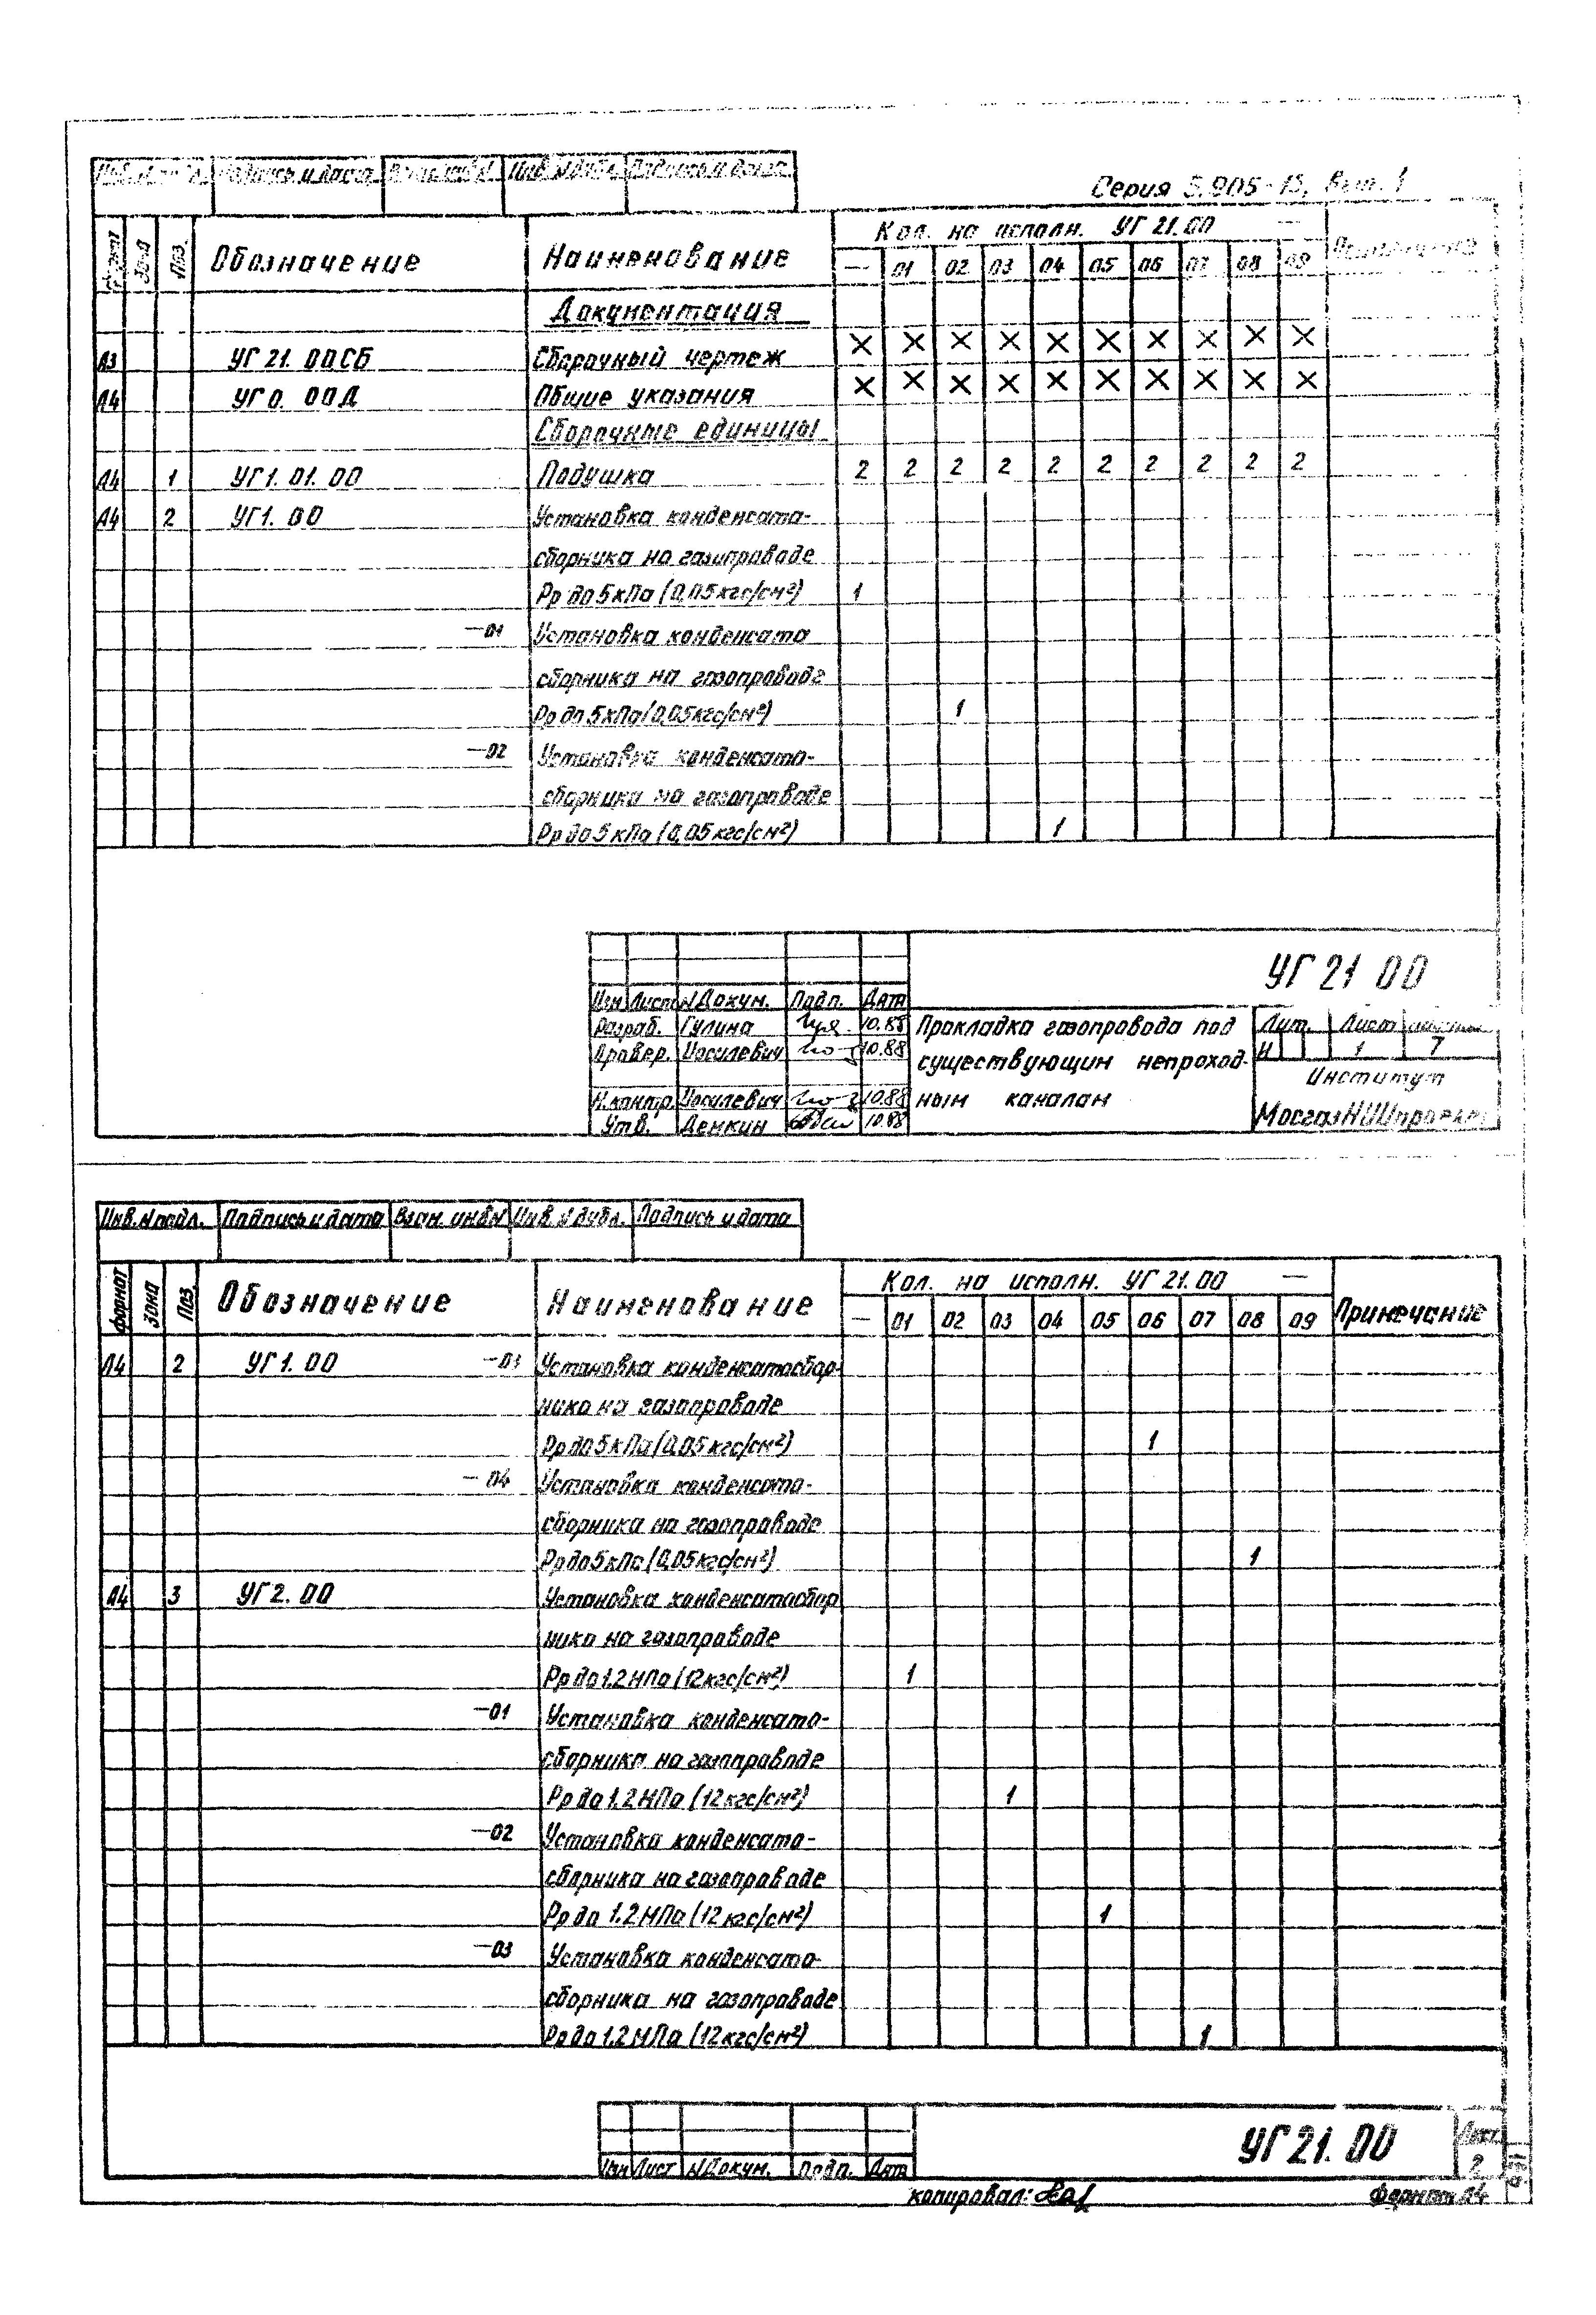 Инв. № подл. Подпись и дата Взам. инв № Инв. № дубл. Подпись и дата
Серия 5.905-15, вып. 1
Формат Зона Поз. Обозначение Наименование Кол. на исполн. УГ 21.00 — Примечание
— 01 02 03 04 05 06 07 08 09
Документация
А3 УГ 21. 00СБ Сборочный чертеж × × × × × × × × × ×
А4 УГ 0. 00Д Общие указания × × × × × × × × × ×
Сборочные единицы
А4 1 УГ1. 01. 00 Подушка 2 2 2 2 2 2 2 2 2 2
А4 2 УГ1. 00 Установка конденсато-
сборника на газопроводе
Рр до 5 кПа (0,05 кгс/см²) 1
—01 Установка конденсато
сборника на газопроводе
Рр до 5 кПа (0,05 кгс/см²) 1
—02 Установка конденсато-
сборника на газопроводе
Рр до 5 кПа (0,05 кгс/см²) 1
УГ 21 00
Изм Лист № Докум. Подп. Дата
Разраб. Гулина 10.88
Провер. Иосилевич 10.88
Н.контр. Иосилевич 10.88
Утв. Демкин 10.88
Прокладка газопровода под
существующим непроход-
ным каналам
Лит. Лист Листов
И 1 7
Институт
МосгазНИИпроект
Инв. № подл. Подпись и дата Взам. инв № Инв. № дубл. Подпись и дата
Формат Зона Поз. Обозначение Наименование Кол. на исполн. УГ 21.00 — Примечание
— 01 02 03 04 05 06 07 08 09
А4 2 УГ 1. 00 —03 Установка конденсатосбор-
ника на газопроводе
Рр до 5 кПа (0,05 кгс/см²) 1
— 04 Установка конденсато-
сборника на газопроводе
Рр до 5 кПа (0,05 кгс/см²) 1
А4 3 УГ 2. 00 Установка конденсатосбор
ника на газопроводе
Рр до 1.2 МПа (12 кгс/см²) 1
—01 Установка конденсато-
сборника на газопроводе
Рр до 1.2 МПа (12 кгс/см²) 1
—02 Установка конденсато-
сборника на газопроводе
Рр до 1.2 МПа (12 кгс/см²) 1
—03 Установка конденсато-
сборника на газопроводе
Рр до 1.2 МПа (12 кгс/см²) 1
УГ 21. 00
Лист
2
Изм Лист № Докум. Подп. Дата
копировал:
Формат А4